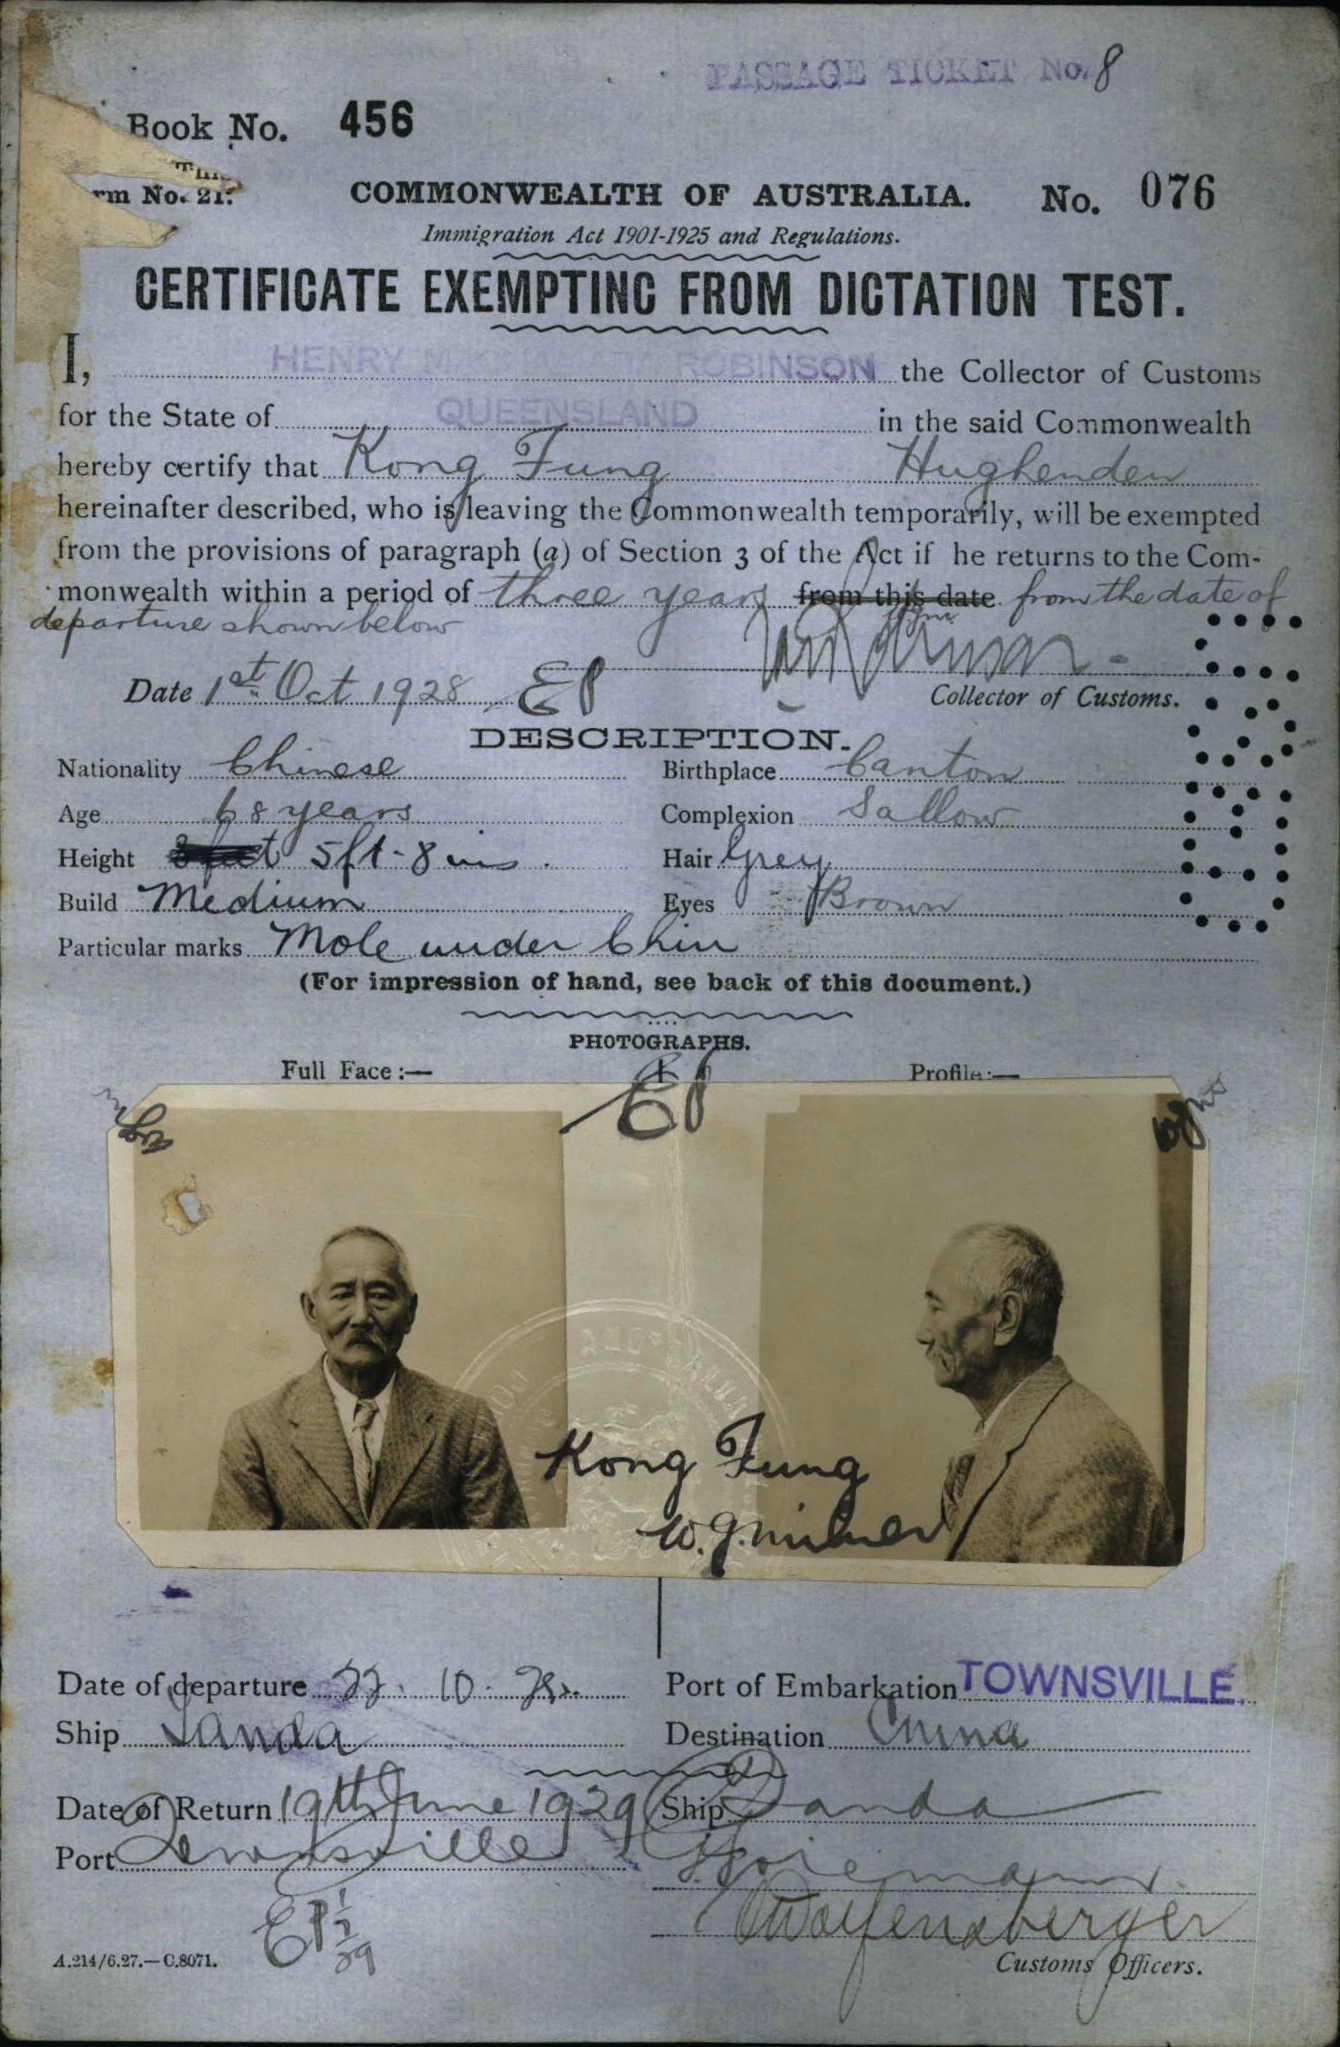 PASSAGE TICKET No. 8
Book No. 456
rm No. 21.
COMMONWEALTH OF AUSTRALIA. No. 076
Immigration Act 1901-1925 and Regulations.
CERTIFICATE EXEMPTING FROM DICTATION TEST.
I, HENRY ROBINSON the Collector of Customs
for the State of QUEENSLAND in the said Commonwealth
hereby certify that Kong Fung Hughenden
hereinafter described, who is leaving the Commonwealth temporarily, will be exempted
from the provisions of paragraph (a) of Section 3 of the Act if he returns to the Com-
monwealth within a period of three years from this date from the date of
departure shown below
Date 1st Oct 1928 EP
Collector of Customs.
DESCRIPTION.
Nationality Chinese Birthplace Canton
Age 68 years Complexion Sallow
Height 5ft-8 ins. Hair Grey
Build Medium Eyes Brown
Particular marks Mole under Chin
(For impression of hand, see back of this document.)
PHOTOGRAPHS.
Full Face:— Profile:—
EP
Kong Fung
W.J. Milner
Date of departure 22. 10. 28. Port of Embarkation TOWNSVILLE.
Ship Tanda Destination China
Date of Return 19th June 1929 Ship Tanda
Port Townsville
EP
Customs Officers.
A.214/6.27.—C.8071.